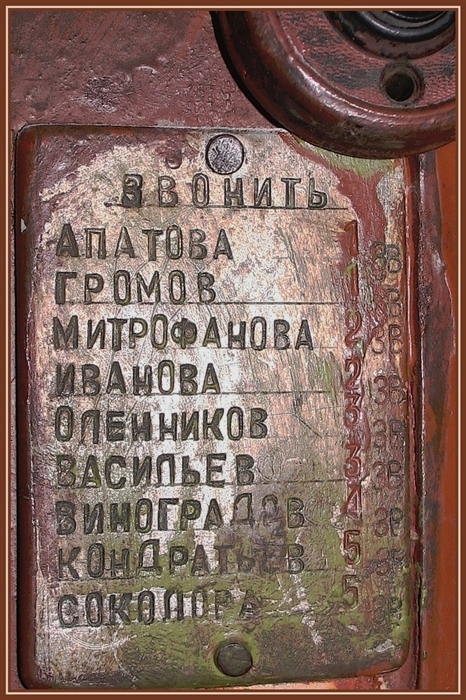 ЗВОНИТЬ
АПАТОВА 1 ЗВ
ГРОМОВ 1 ЗВ
МИТРОФАНОВА 2 ЗВ
ИВАНОВА 2 ЗВ
ОЛЕИНИКОВ 3 ЗВ
ВАСИЛЬЕВ 3 ЗВ
ВИНОГРАДОВ 4 ЗВ
КОНДРАТЬЕВ 5 ЗВ
СОКОЛОВА 5 ЗВ